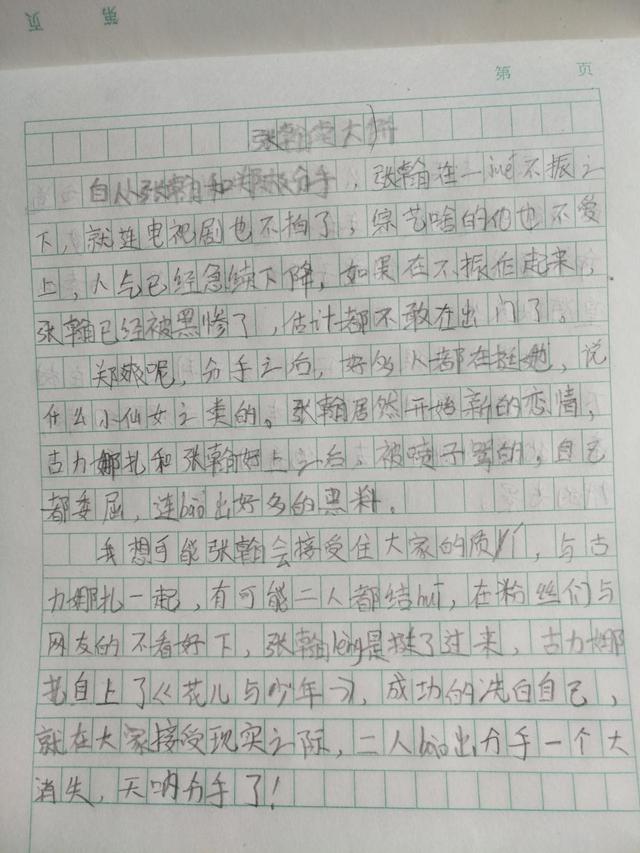 第 页
第 页
张翰大
自从张翰和郑爽分手，张翰在一jué不振之
下，就连电视剧也不拍了，综艺啥的他也不爱
上，人气已经急续下降，如果在不振作起来，
张翰已经被黑惨了，估计都不敢在出门了。
郑爽呢，分手之后，好多人都在挺她，说
什么小仙女之类的。张翰居然开始新的恋情，
古力娜扎和张翰好上之后，被喷子骂的，自己
都委屈，连bào出好多的黑料。
我想可能张翰会接受住大家的质，与古
力娜扎一起，有可能二人都结hūn，在粉丝们与
网友的不看好下，张翰lèng是挺了过来，古力娜
扎自上了《花儿与少年》，成功的洗白自己，
就在大家接受现实之际，二人bào出分手一个大
消失，天呐分手了！